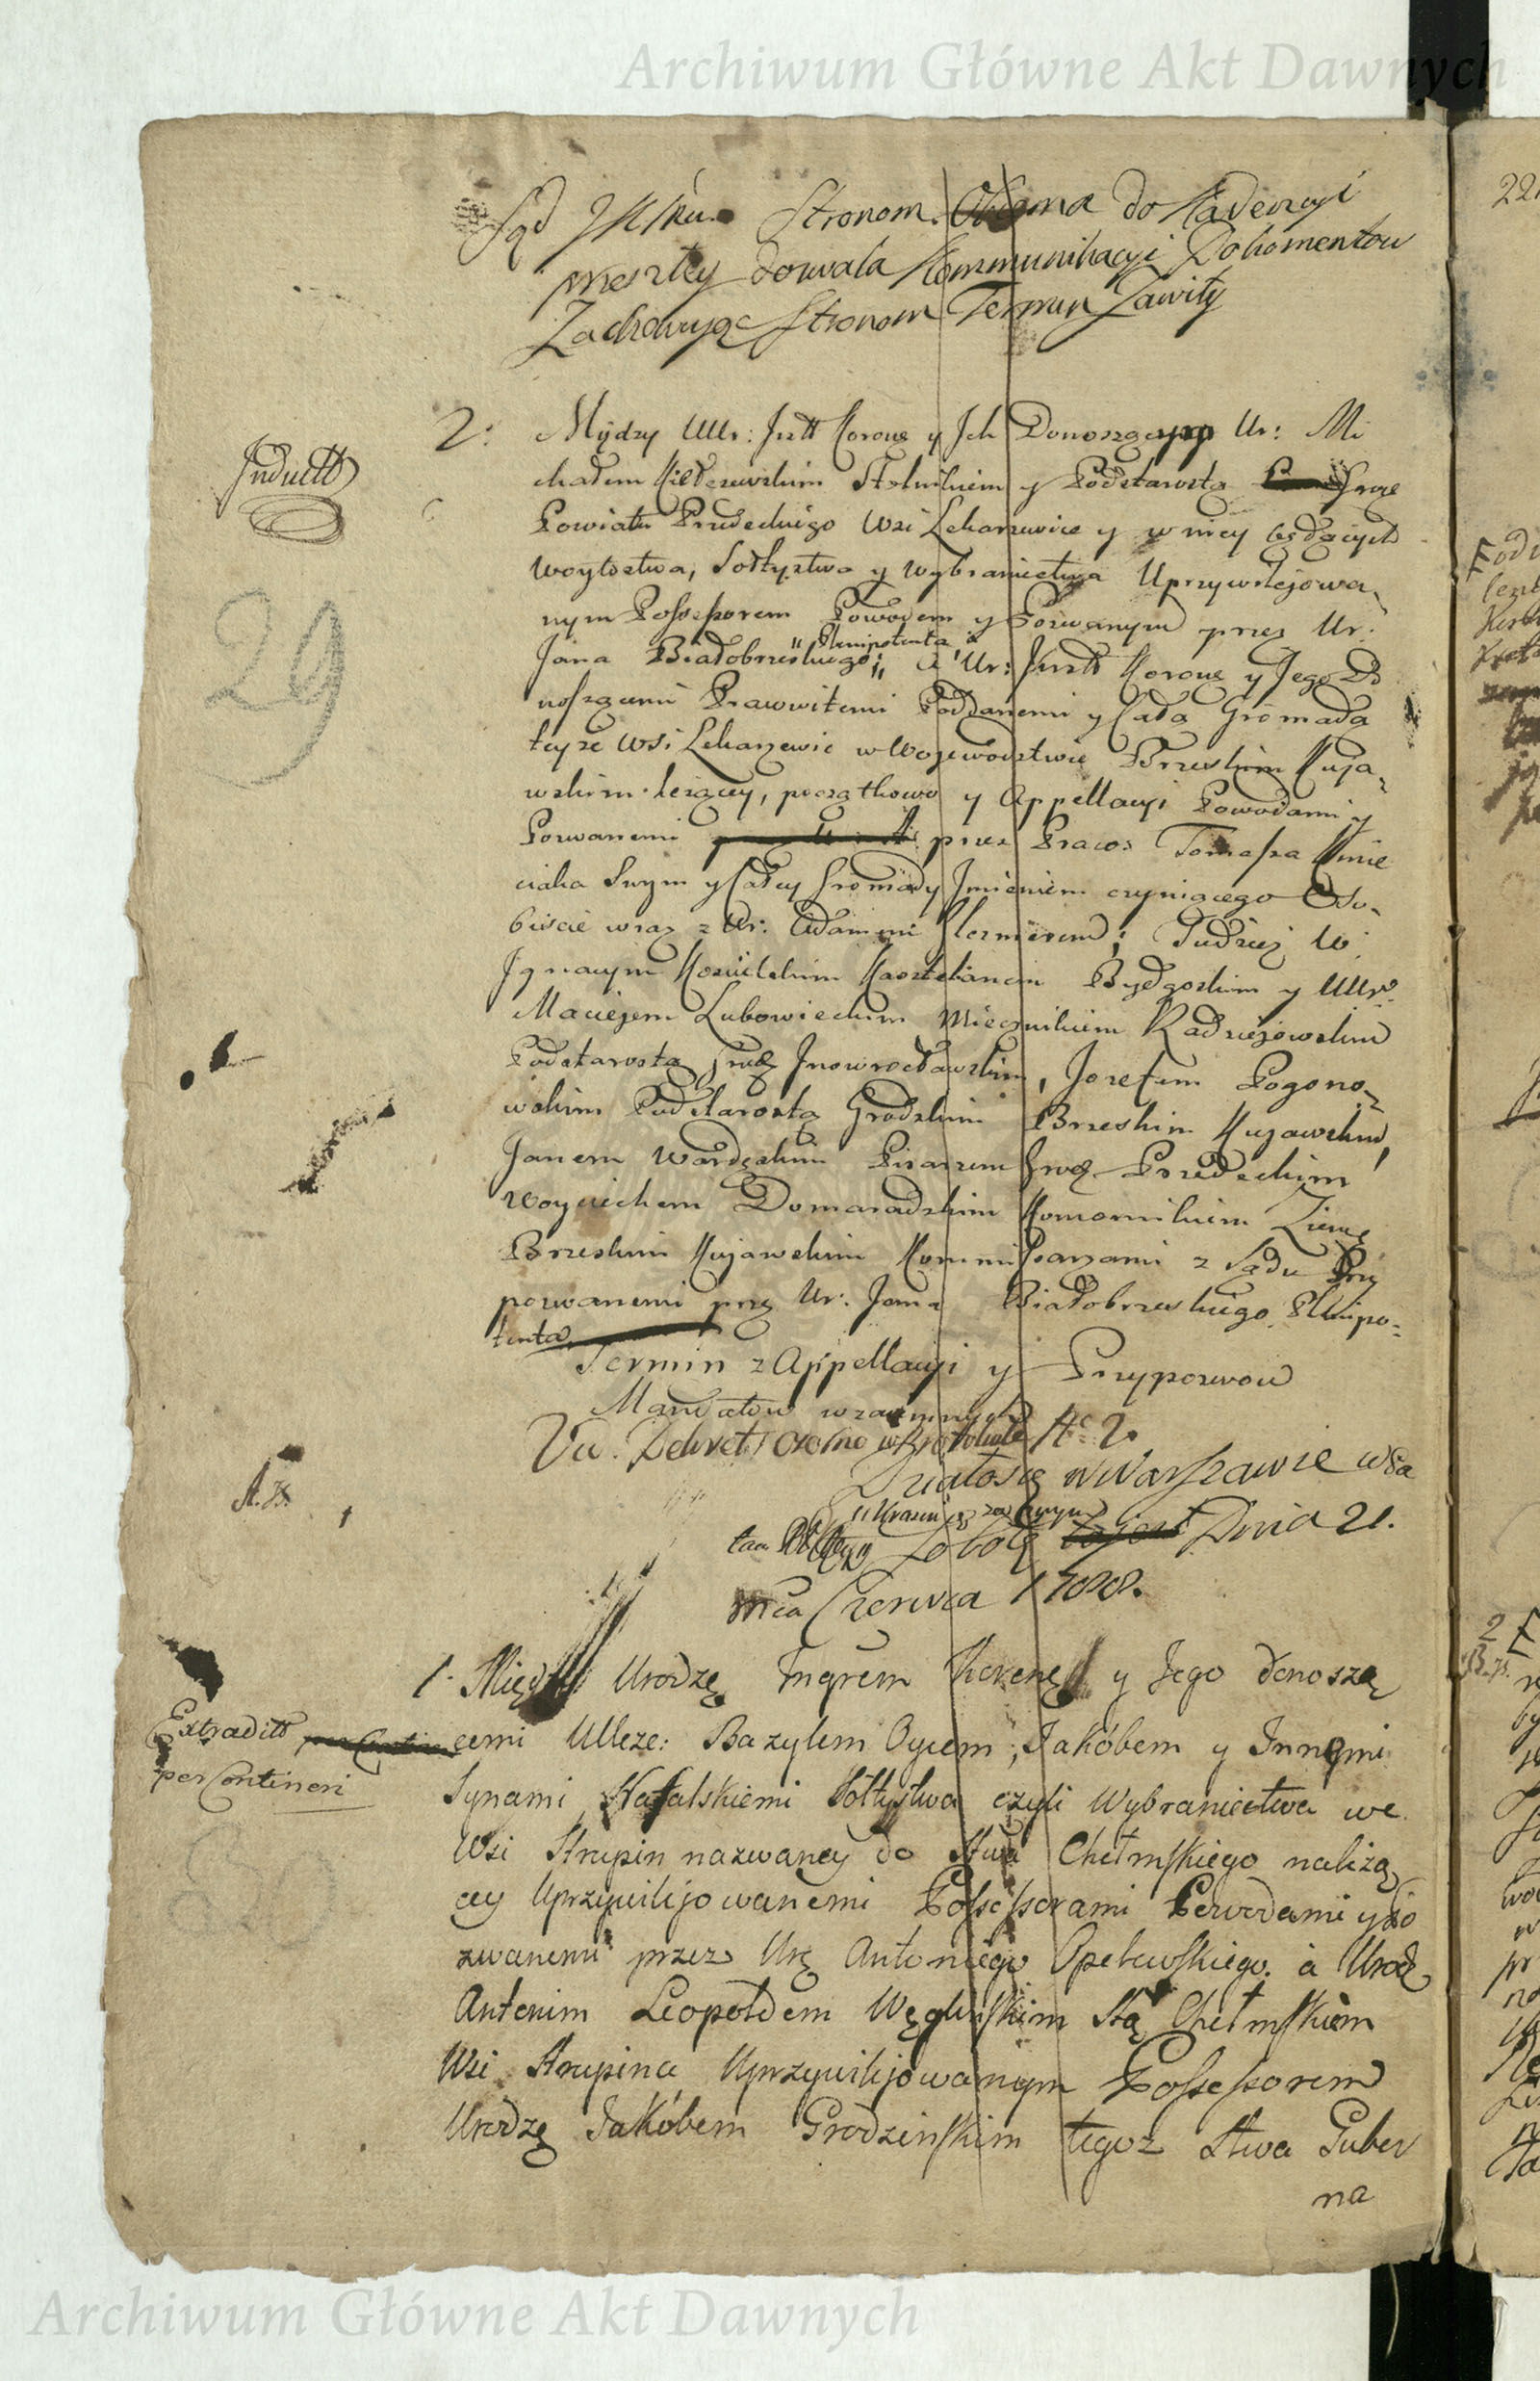 Archiwum Główne Akt Dawnych
Sąd JKMci Stronom Obiema do Kadencyi
przeszłey dozwala Kommunikacyi Dokomentow
Zachowując Stronom Termin Zawity
2. Między UUr: Instt Koronę y Ich Donoszącym Ur: Mi
Induitt
chałem Kiełczewskim Stolnikiem y Podstarostą Grge
Powiatu Przedeckiego Wsi Lekarzewice y w niey będących
Woytostwa, Sołtystwa y Wybraniectwa Uprzywilejowa,
nym Possessorem Powodem y Pozwanym przez Ur:
29
Jana Białobrzeskiego „Plenipotenta„ a Ur: Instt Koronę y Jego Do
noszącemi Pracowitemi Poddanemi y Całą Gromadą
teyże Wsi Lekarzewic w Wojewodztwie Brzeskim Kuja,
wskim leżącey, początkowo y Appellacyi Powodami y
Pozwanemi przez Praco: Tomasza Kmie
ciaka Swym y Całey Gromady Jmieniem czyniącego Oso,
biscie wraz z Ur: Adamem ; Tudzież W:
Jgnacym Kościelskim Kasztelanem Bydgoskim y UUr
Maciejem Lubowieckim Miecznikiem Radziejowskim
Podstarostą Grgę Jnowrocławskim, Jozefem Pogono,
wskim Podstarostą Grodzkim Brzeskim Kujawskim,
Janem Wardęskim Pisarzem Grgę Przedeckim,
Woyciechem Domaradzkim Komornikiem Ziemę
Brzeskim Kujawskim Kommissarzami z Sądu Przy
pozwanemi przez Ur: Jana Białobrzeskiego Plenipo=
tenta
Termin z Appellacyi y Przypozwow
Mandatow wzaiemnych
Vid. Dekret Osobno w Protokule No 2.
Działo się w Warszawie w Sa
A.B.
Sobotę Dnia 21.
mca Czerwca 1788.
1. Między Urodzę Jngrem Koronę y Jego donoszą
Extraditt
cemi UUrze: Bazylem Oycem, Jakóbem y Jnnemi
per Contineri
Synami Sołtystwa czyli Wybraniectwa we
Wsi Strupin nazwaney do Stwa Chełmskiego należą
cey Uprzywilijowanemi Possessorami Powodami y Po
zwanemi przez Urę Antoniego Opelewskiego. a Urodz
Antonim Leopoldem Węglińskim Stą Chełmskim
Wsi Strupina Uprzywilijowanym Possessorem
Urodzę Jakóbem Grodzinskim tegoż Stwa Guber
na
Archiwum Główne Akt Dawnych